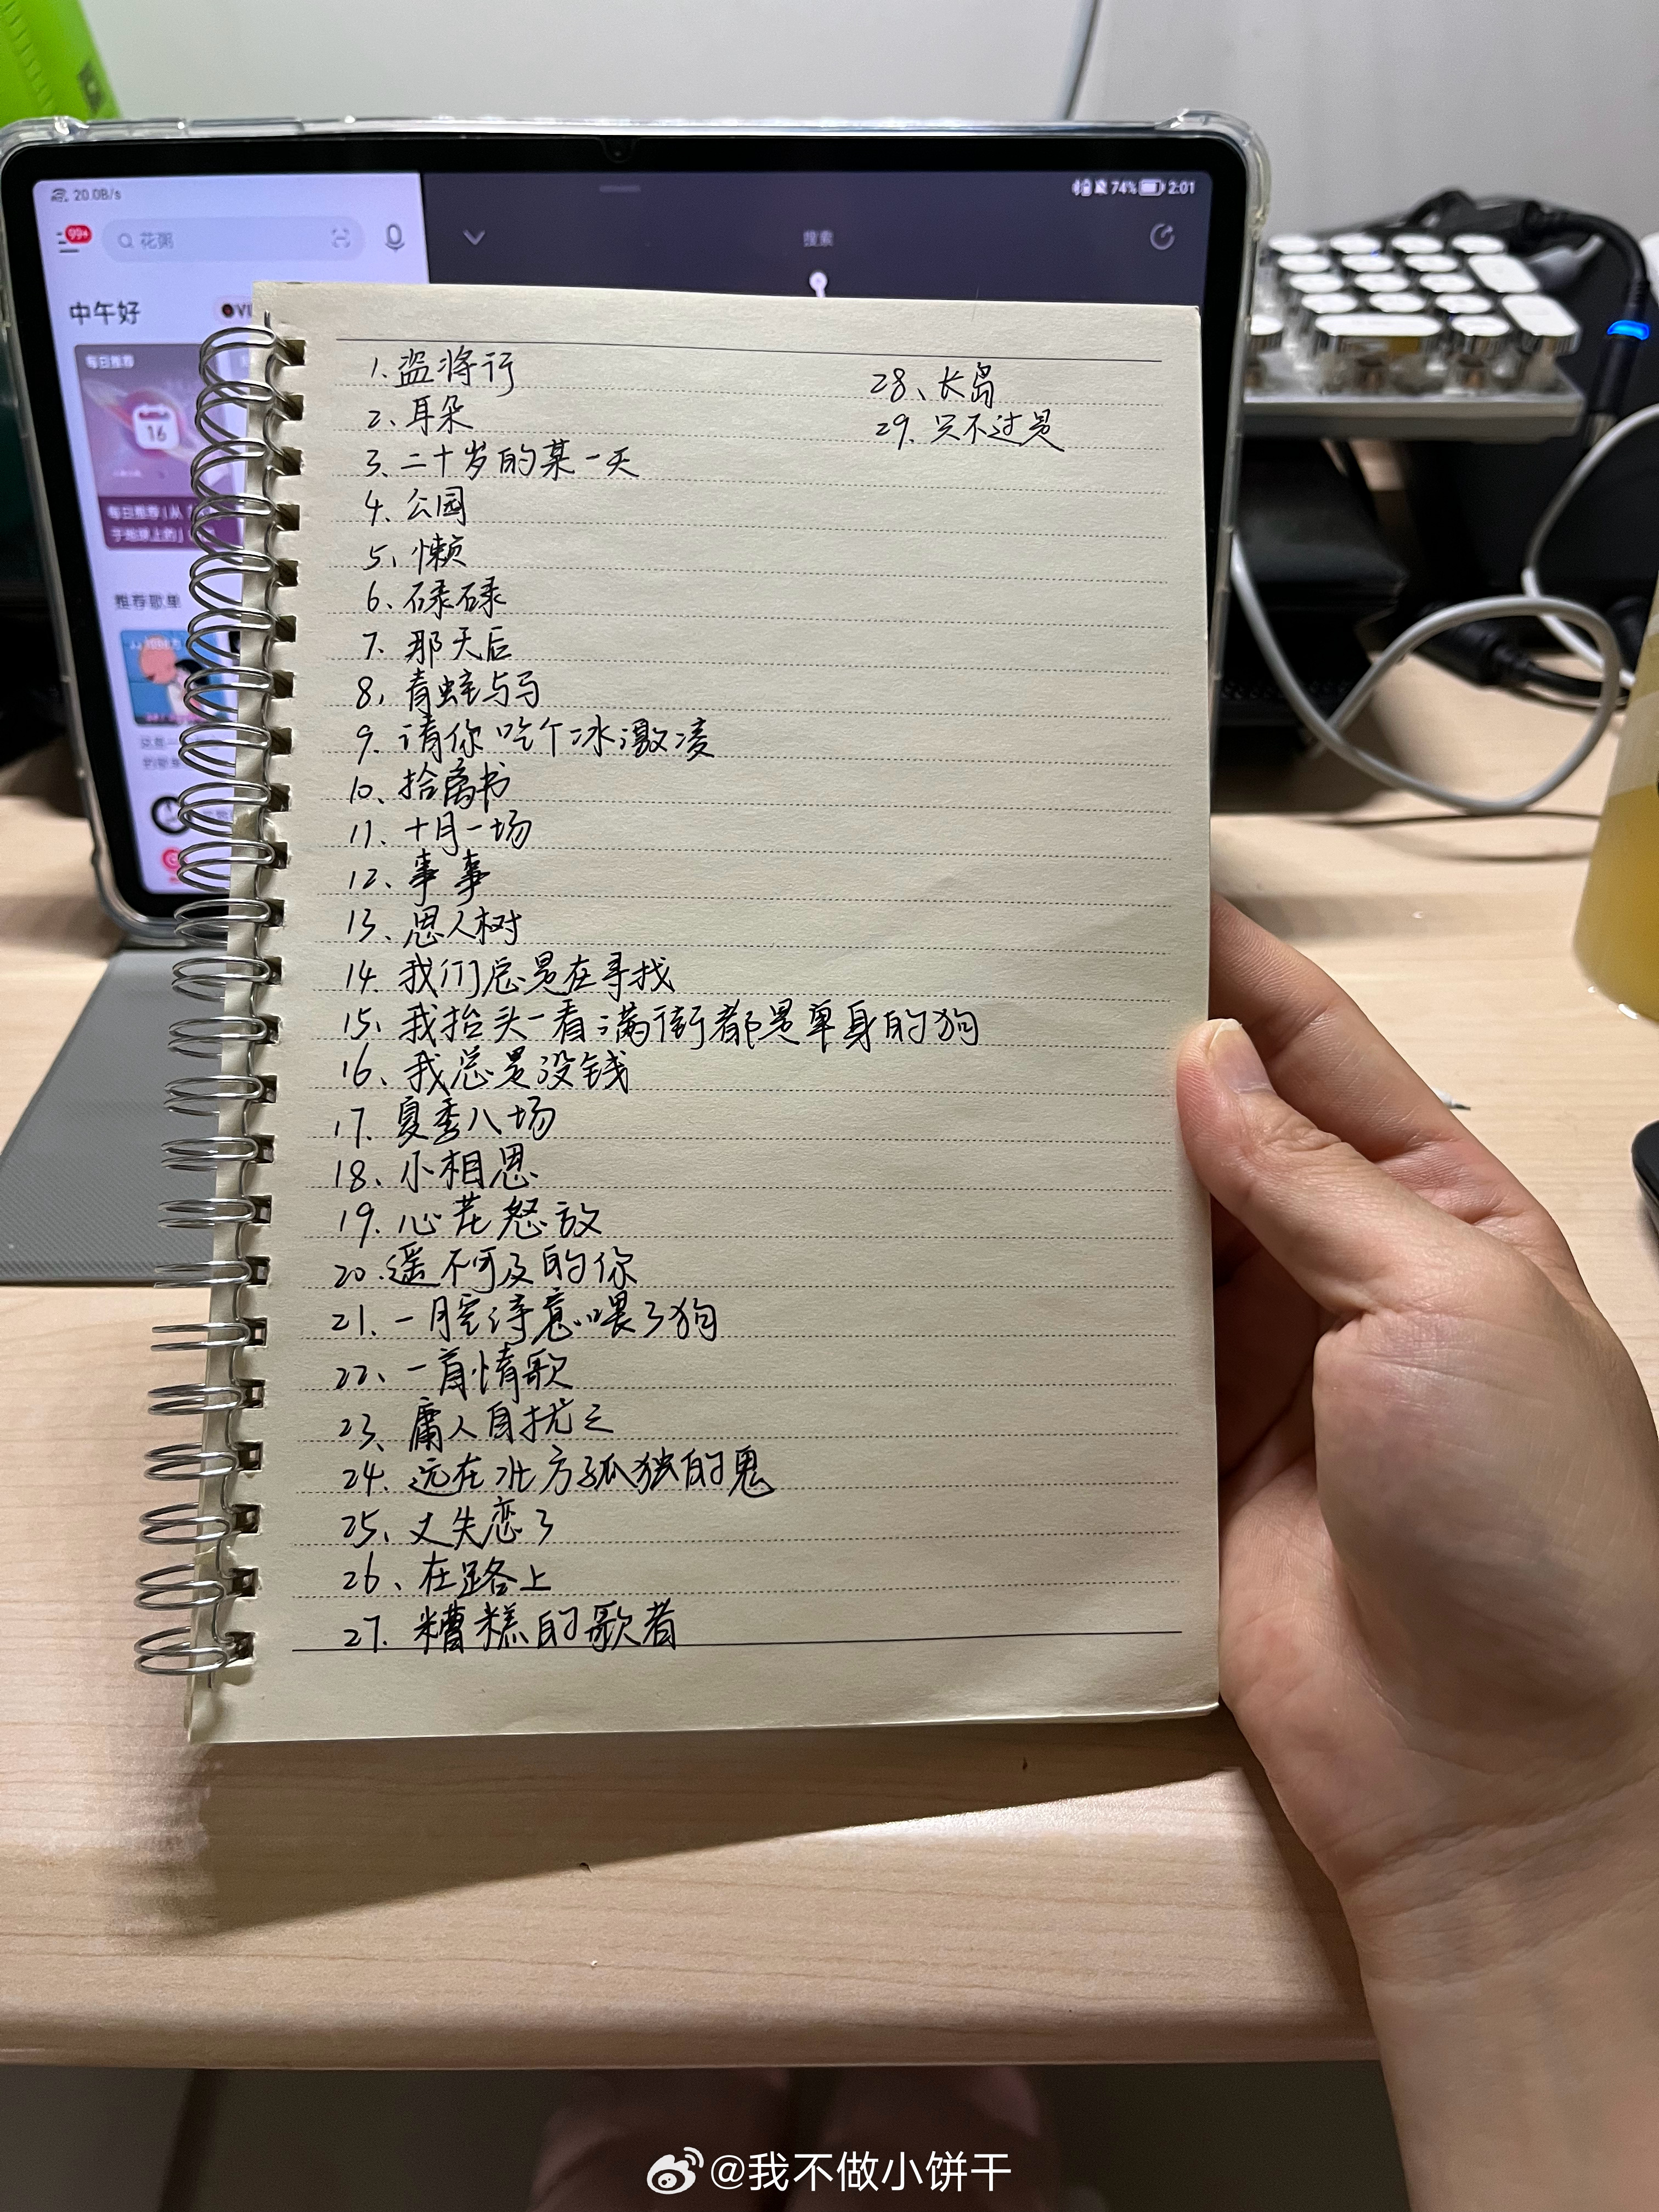 20.0B/s
74% 2:01
99+
花粥
搜索
中午好
每日推荐
16
推荐歌单
1. 盗将行
2、耳朵
3、二十岁的某一天
4、公园
5、懒
6、碌碌
7、那天后
8、青蛙与马
9、请你吃个冰激凌
10、拾离书
11、十月一场
12、事事
13、恩人树
14、我们总是在寻找
15、我抬头一看满街都是单身的狗
16、我总是没钱
17、夏季八场
18、小相思
19、心花怒放
20、遥不可及的你
21、一腔诗意喂了狗
22、一首情歌
23、庸人自扰之
24、远在北方孤独的鬼
25、又失恋了
26、在路上
27、糟糕的歌者
28、长岛
29、只不过是
@我不做小饼干